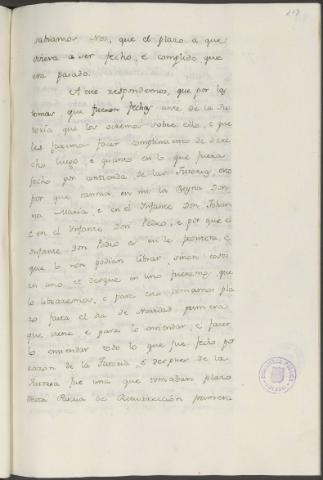 117
sabiamos Nos, que el plazo a que
oviera a ser fecho, e complido, que
era pasado.
A esto respondemos, que por las
tomas que fueron fechas ante de la Tu
toria que los oiremos sobre ello, e que
les faremos facer complimiento de dere
cho luego, e quanto en lo que fuera
fecho por contienda de la Tutoria, esto
por que tannia en mi la Reyna Don
na Maria, e en el Infante Don Johan
e en el Infante Don Pedro, e por que el
Infante Don Pedro es en la frontera, e
que lo non podian librar, sinon todos
en uno, e desque en uno fueremos, que
lo libraremos, e para esto tomamos pla
zo fasta el dia de Navidad primera
que viene, e para lo emendar, e facer
lo emendar todo lo que fue fecho por
razon de la Tutoria, e despues de la
Tutoria fue una que tomaban plazo
fasta Pascua de Resurrección primera